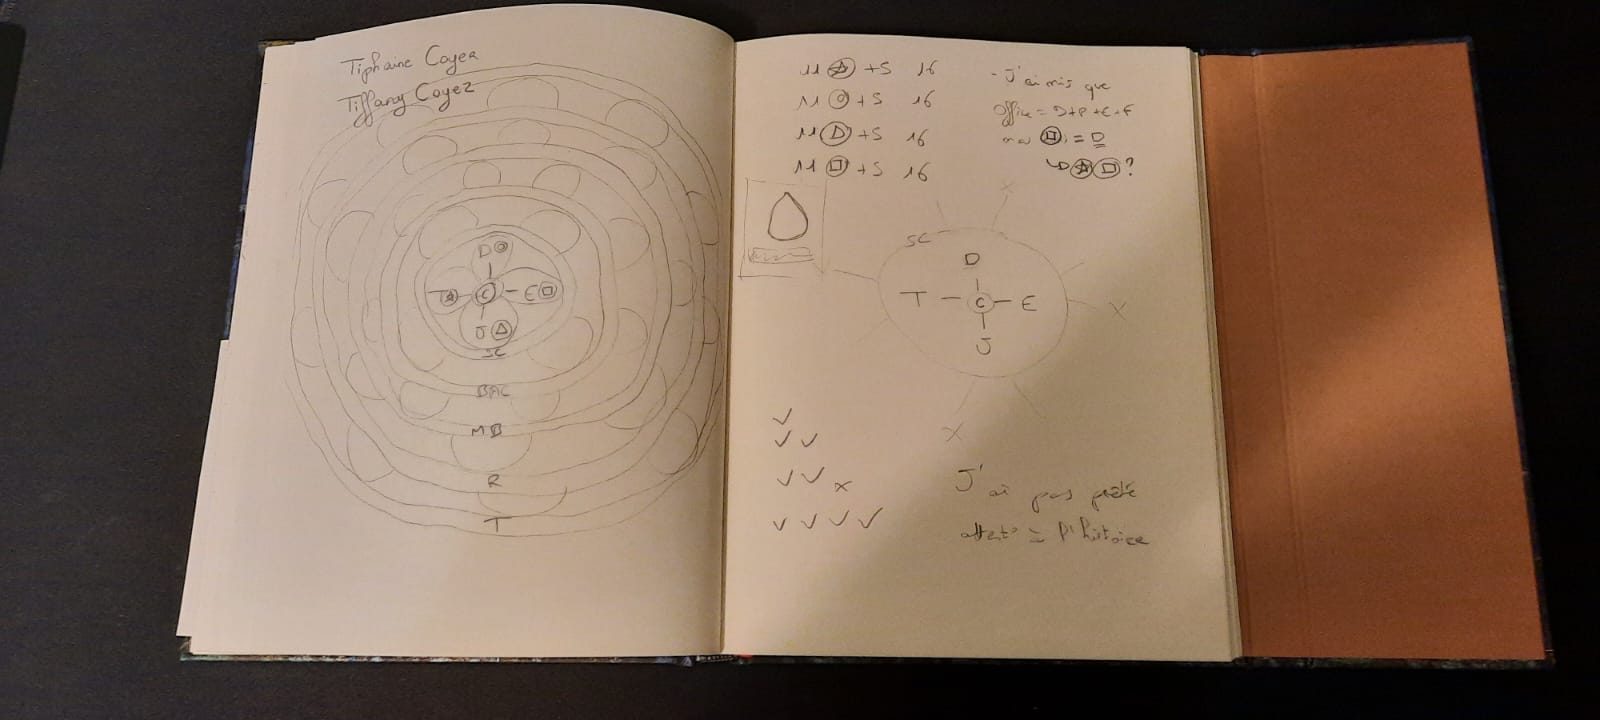 Tiphaine Coyez
Tiffany Coyez
D
T C E
J
SC
BAC
MB
R
T
11 +5 16
11 +5 16
11 +5 16
11 +5 16
- J'ai mis que
Office = D+P+E+F
= D
?
SC
D
T - C - E
J
J'ai pas prêté
attent° à l'histoire